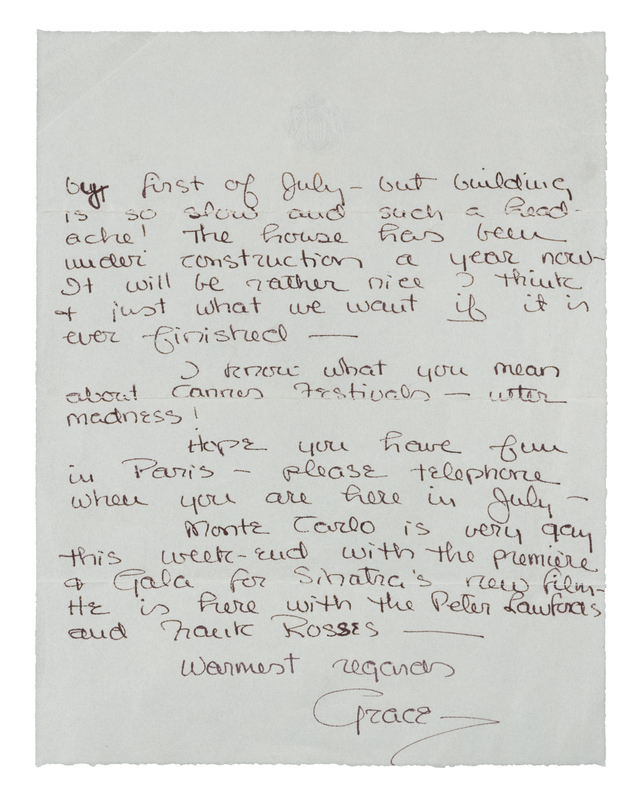 by first of July - but building
is so slow and such a head-
ache! The house has been
under construction a year now-
It will be rather nice I think
& just what we want if it is
ever finished —
I know what you mean
about Cannes Festivals - utter
madness!
Hope you have fun
in Paris - please telephone
when you are here in July -
Monte Carlo is very gay
this week-end with the premiere
& Gala for Sinatra's new film-
He is here with the Peter Lawfords
and Frank Rosses —
Warmest regards
Grace